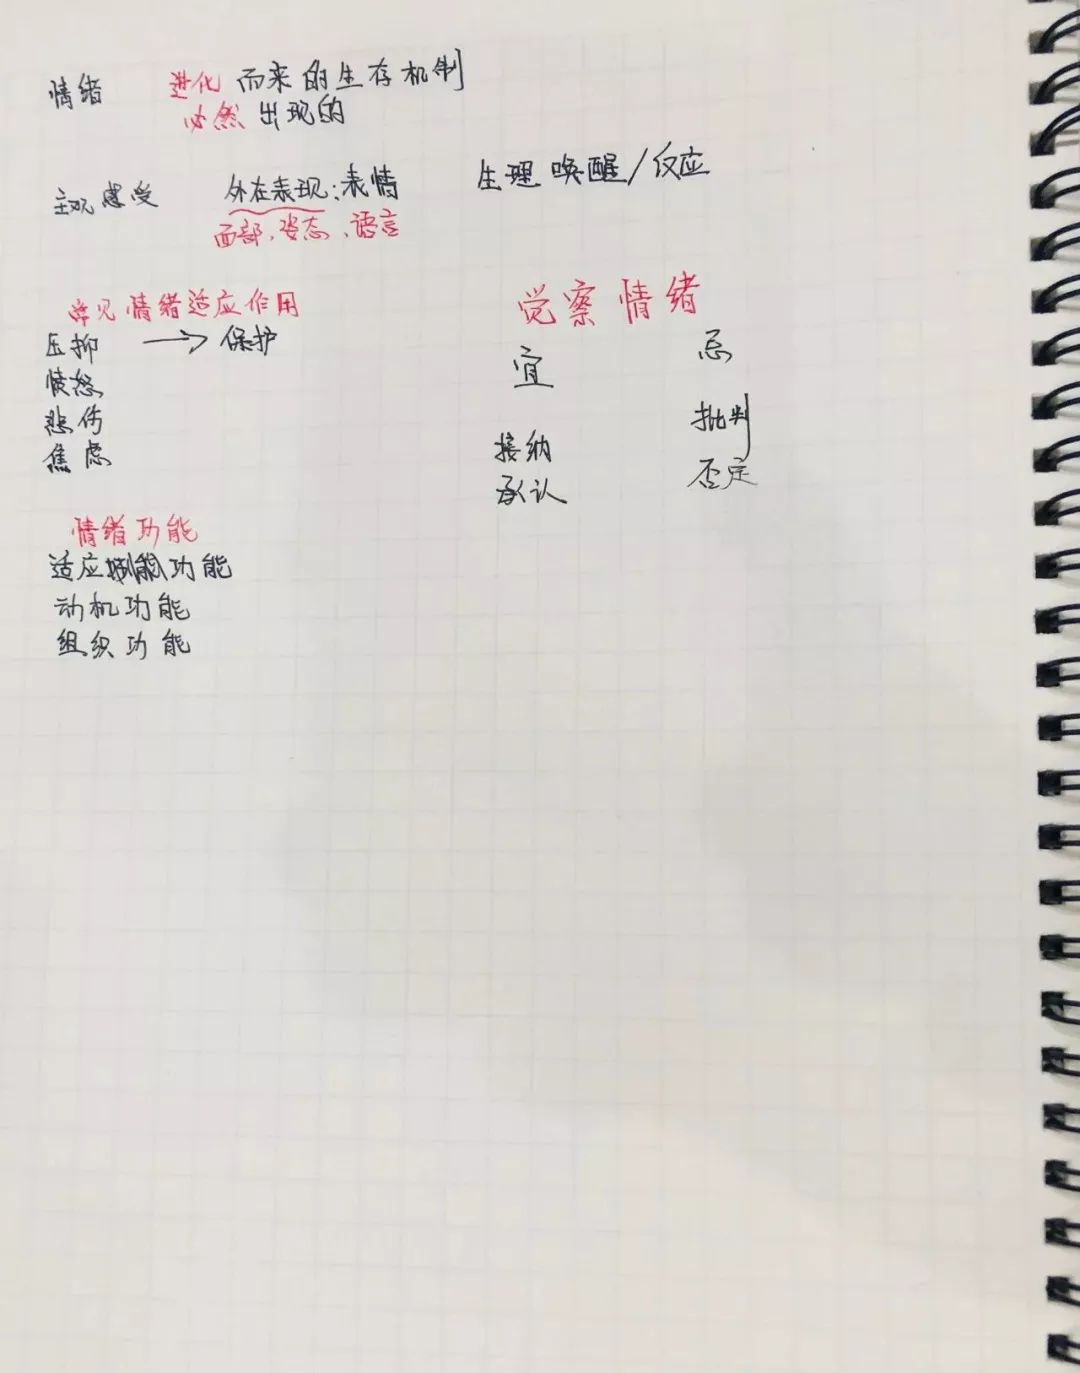 情绪 进化而来的生存机制
必然出现的
主观感受 外在表现:表情 生理唤醒/反应
面部、姿态、语言
常见情绪适应作用
压抑 → 保护
愤怒
悲伤
焦虑
觉察情绪
宜 忌
接纳 批判
承认 否定
情绪功能
适应功能
动机功能
组织功能